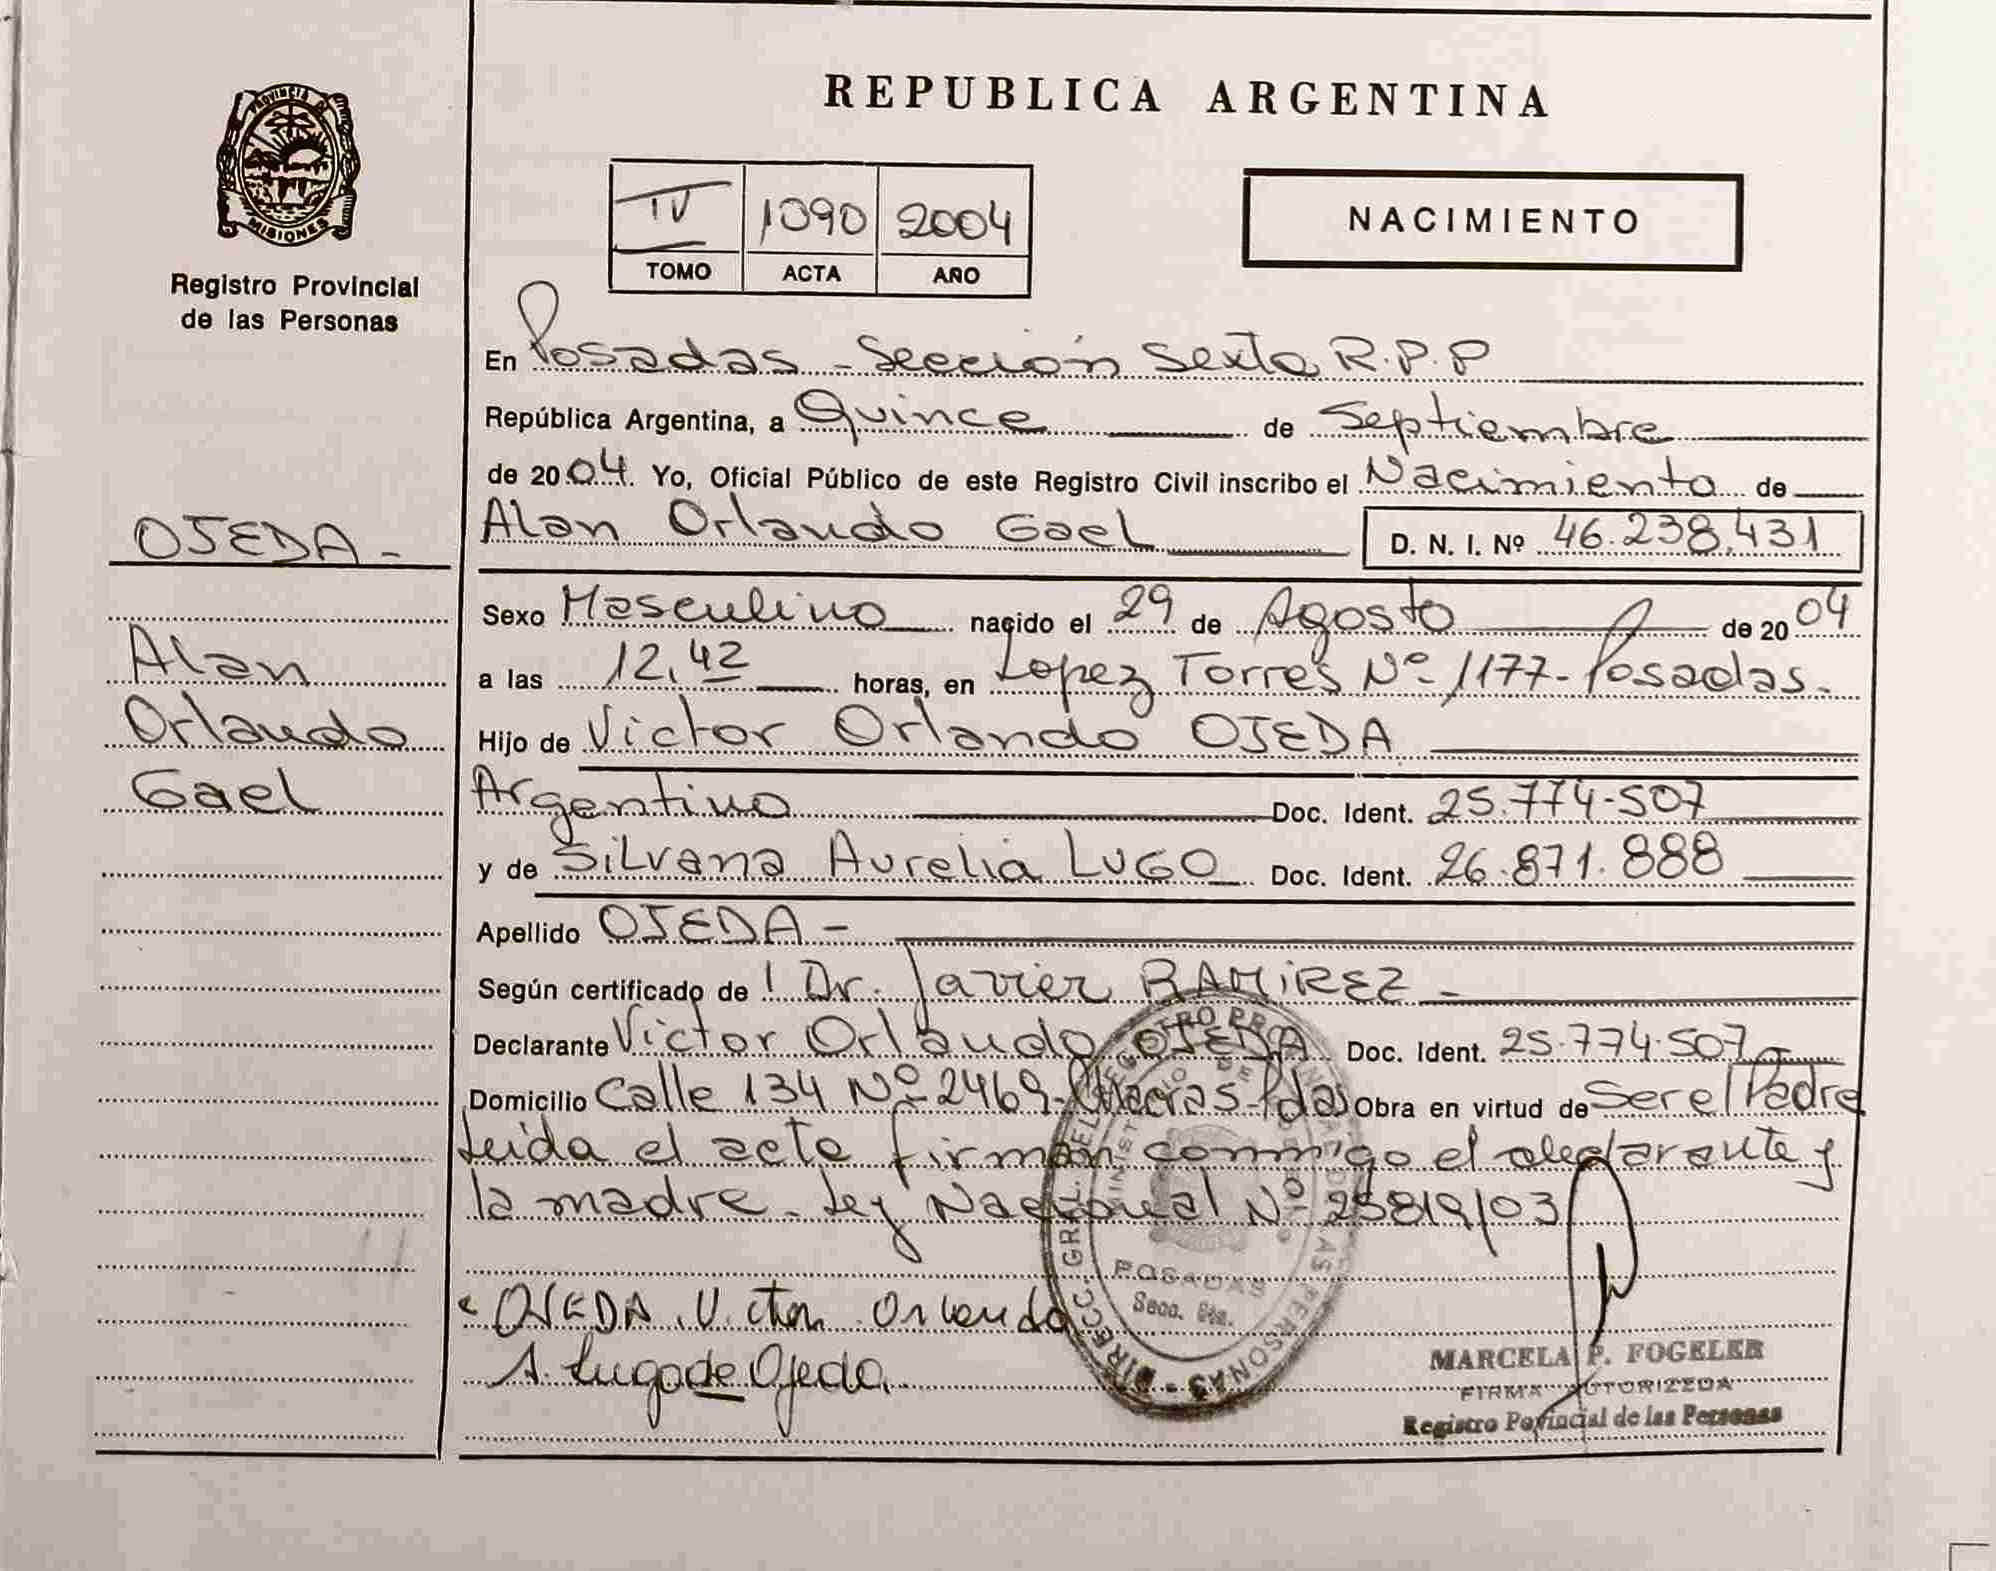 PROVINCIA DE
MISIONES
Registro Provincial
de las Personas
OJEDA -
Alan
Orlando
Gael
REPUBLICA ARGENTINA
IV 1090 2004
TOMO ACTA AÑO
NACIMIENTO
En Posadas - Sección Sexta R.P.P
República Argentina, a Quince de Septiembre
de 2004. Yo, Oficial Público de este Registro Civil inscribo el Nacimiento de
Alan Orlando Gael D. N. I. Nº 46.238.431
Sexo Masculino nacido el 29 de Agosto de 2004
a las 12,42 horas, en Lopez Torres Nº 1177 - Posadas.
Hijo de Victor Orlando OJEDA
Argentino Doc. Ident. 25.774.507
y de Silvana Aurelia LUGO Doc. Ident. 26.871.888
Apellido OJEDA -
Según certificado de Dr. Javier RAMIREZ -
Declarante Victor Orlando OJEDA Doc. Ident. 25.774.507
Domicilio Calle 134 Nº 2469 - Chacras - Pdas Obra en virtud de Ser el Padre
Leida el acta firman conmigo el declarante y
la madre - Ley Nacional Nº 25819/03
OJEDA Victor Orlando
S. Lugo de Ojeda
POSADAS
Secc. 6ta.
MARCELA P. FOGELER
FIRMA AUTORIZEDA
Registro Povincial de las Personas